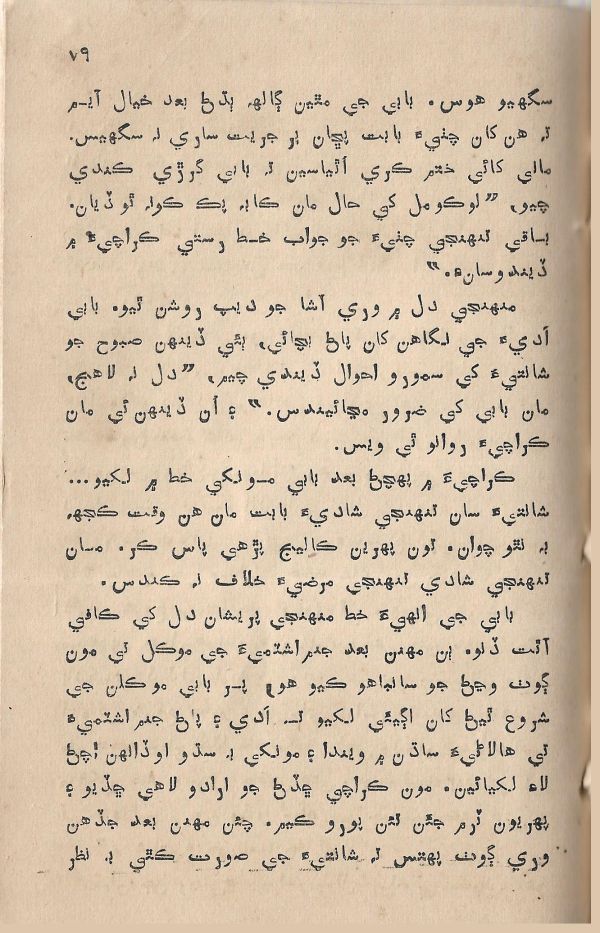 ٧٩
سگهيو هوس. بابي جي مٿين ڳالهہ ٻڌڻ بعد خيال آيـم
تہ هن کان چٺيءَ بابت پڇان پر جريت ساري نہ سگهيس.
ماني کائي ختم ڪري اُٿياسين تہ بابي گرڙي ڪندي
چيو، ”لوڪومل کي حال مان ڪابہ پڪ ڪونہ ٿو ڏيان.
بـاقي تنهنجي چٺيءَ جو جواب خـط رستي ڪراچيءَ ۾
ڏيندوسانءِ.“
منهنجي دل ۾ وري آشا جو ديپ روشن ٿيو. بابي
اَديءَ جي نگاهن کان پاڻ بچائي، ٻئي ڏينهن صبوح جو
شانتيءَ کي سمورو احوال ڏيندي چيم، ”دل نہ لاهيج،
مان بابي کي ضرور مڃائيندس.“ ۽ اُن ڏينهن ئي مان
ڪراچيءَ روانو ٿي ويس.
ڪراچيءَ ۾ پهچڻ بعد بابي مـونکي خط ۾ لکيو...
شانتيءَ سان تنهنجي شاديءَ بابت مان هن وقت ڪجهہ
بہ نٿو چوان. تون پهرين ڪاليج پڙهي پاس ڪر. مـان
تنهنجي شادي تنهنجي مرضيءَ خلاف نہ ڪندس.
بابي جي انهيءَ خط منهنجي پريشان دل کي ڪافي
آٿت ڏنو. ٻن مهنن بعد جنم اشٽميءَ جي موڪل تي مون
ڳوٺ وڃڻ جو سانباهو ڪيو هو، پـر بابي موڪلن جي
شروع ٿيڻ کان اڳيئي لکيو تہ اَدي ۽ پاڻ جنم اشٽميءَ
تي هالاڻيءَ ساڌن ۾ ويندا ۽ مونکي بہ سڌو اوڏانهن اچڻ
لاءِ لکيائين. مون ڪراچي ڇڏڻ جو ارادو لاهي ڇڏيو ۽
پهريون ٽرم جئن تئن پورو ڪيم. ڇئن مهنن بعد جڏهن
وري ڳوٺ پهتس تہ شانتيءَ جي صورت ڪٿي بہ نظر